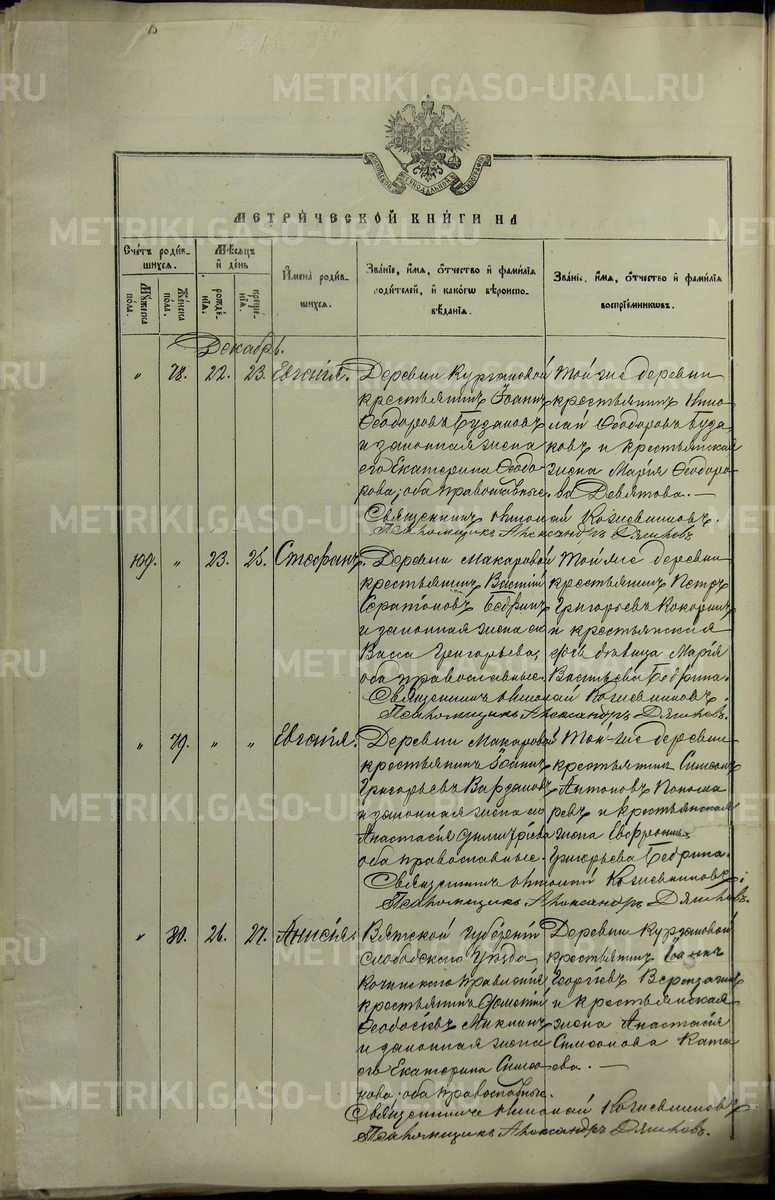 METRIKI.GASO-URAL.RU
МЕТРИ́ЧЕСКОЙ КНИ́ГИ НА
Сче́тъ роди́в-
шихся.
Мѣ́сяцъ
и҆ де́нь
И҆мена̀ роди́в-
шихся.
Зва́нїе, и҆́мя, ѻ҆́тчество и҆ фами́лїя
роди́телей, и҆ како́гѡ вѣроиспо-
вѣ́данїя.
Зва́нїе, и҆́мя, ѻ҆́тчество и҆ фами́лїя
воспрїе́мникѡвъ.
Мꙋ́жеска по́ла.
Же́нска по́ла.
рожде́-нїя.
креще́-нїя.
Декабрь.
" 78. 22. 23. Евгенія.
Деревни Кургановой
крестьянинъ Іоаннъ
Ѳеодоровъ
и законная жена
его Екатерина Ѳеодо-
рова; оба православные.
Той-же деревни
крестьянинъ Нико-
лай Ѳеодоровъ
и крестьянская
жена Марія Ѳеодоро-
ва Девятова. —
Священникъ Николай Кожевниковъ.
Псаломщикъ Александръ
109. " 23. 25. Стефанъ.
Деревни Макаровой
крестьянинъ Василій
и законная жена его
Васса Григорьева,
оба православные.
Той-же деревни
крестьянинъ Петръ
Григорьевъ Кокоринъ
и крестьянская
дѣвица Марія
Васильева
Священникъ Николай Кожевниковъ.
Псаломщикъ Александръ
" 79. " " Евгенія.
Деревни Макаровой
крестьянинъ Іоаннъ
Григорьевъ
и законная жена его
Анастасія Димитріева
оба православные.
Той-же деревни
крестьянинъ Симеонъ
Антоновъ Понома-
ревъ и крестьянская
жена
Григорьева
Священникъ Николай Кожевниковъ.
Псаломщикъ Александръ
" 80. 26. 27. Анисія.
Вятской губерніи
Слободского уѣзда
крестьянинъ
Ѳеодосіевъ
и законная жена
его Екатерина Симео-
нова; оба православные.
Деревни Кургановой
крестьянинъ
Георгіевъ
и крестьянская
жена Анастасія
Симеонова Ката-
ева. —
Священникъ Николай Кожевниковъ.
Псаломщикъ Александръ